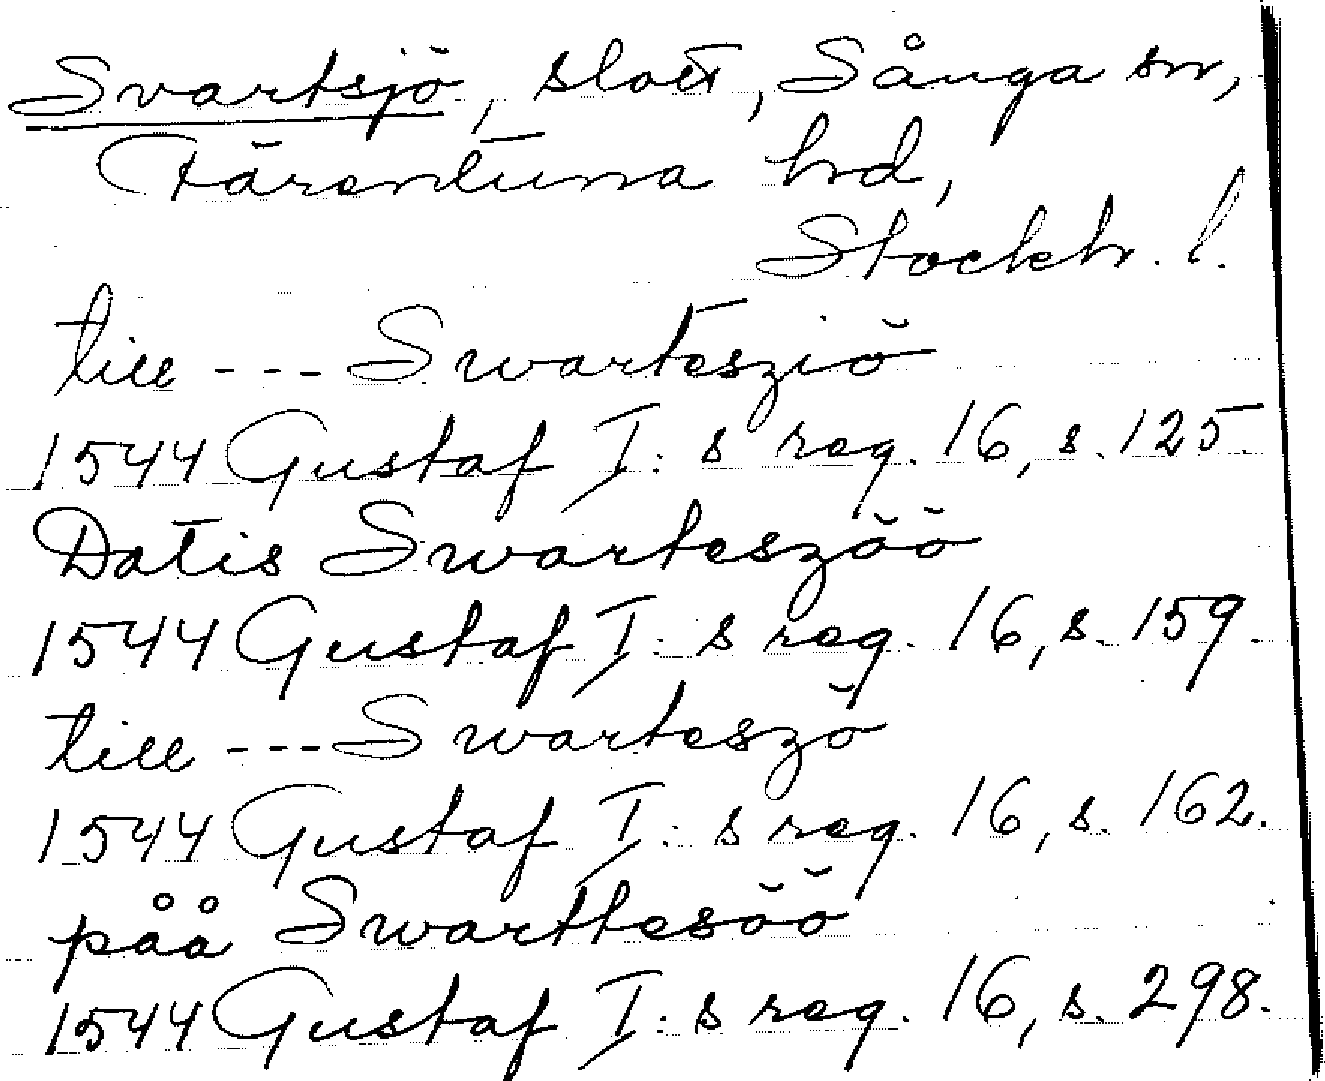 Svartsjö, slott, Sånga sn,
Färentuna hd,
Stockh. l.
till --- Swartesziö
1544 Gustaf I:s reg. 16, s. 125.
Datis Swarteszöö
1544 Gustaf I:s reg. 16, s. 159.
till --- Swarteszö
1544 Gustaf I:s reg. 16, s. 162.
påå Swarttesöö
1544 Gustaf I:s reg. 16, s. 298.